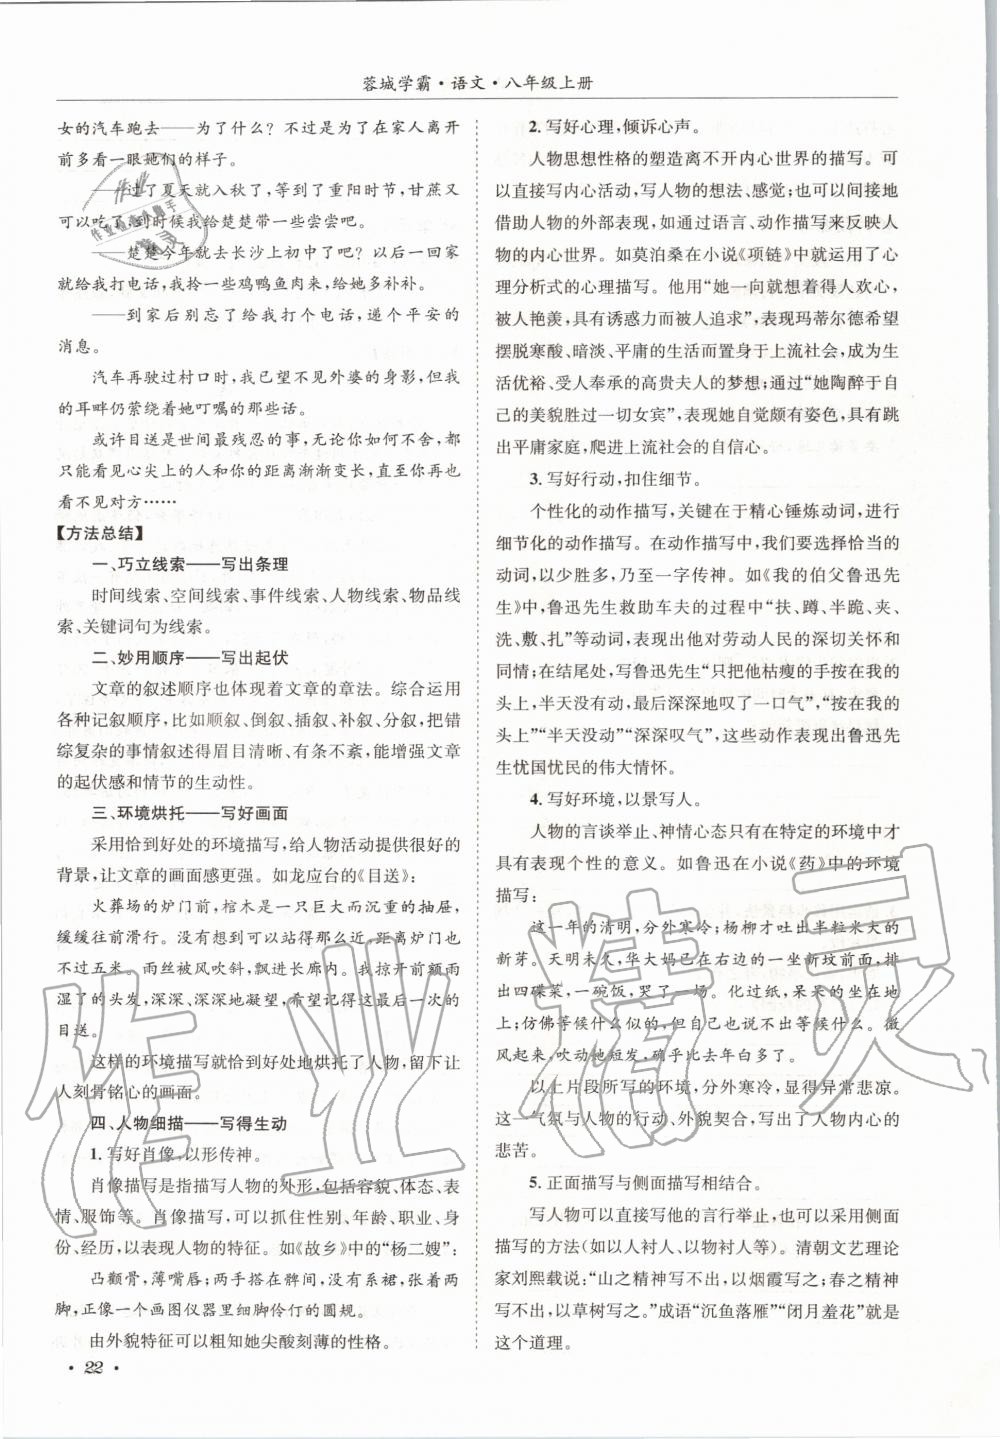 蓉城学霸·语文·八年级上册
女的汽车跑去——为了什么？不过是为了在家人离开
前多看一眼她们的样子。
——过了夏天就入秋了，等到了重阳时节，甘蔗又
可以吃了，到时候我给楚楚带一些尝尝吧。
——楚楚今年就去长沙上初中了吧？以后一回家
就给我打电话，我拎一些鸡鸭鱼肉来，给她多补补。
——到家后别忘了给我打个电话，递个平安的
消息。
汽车再驶过村口时，我已望不见外婆的身影，但我
的耳畔仍萦绕着她叮嘱的那些话。
或许目送是世间最残忍的事，无论你如何不舍，都
只能看见心尖上的人和你的距离渐渐变长，直至你再也
看不见对方……
【方法总结】
一、巧立线索——写出条理
时间线索、空间线索、事件线索、人物线索、物品线
索、关键词句为线索。
二、妙用顺序——写出起伏
文章的叙述顺序也体现着文章的章法。综合运用
各种记叙顺序，比如顺叙、倒叙、插叙、补叙、分叙，把错
综复杂的事情叙述得眉目清晰、有条不紊，能增强文章
的起伏感和情节的生动性。
三、环境烘托——写好画面
采用恰到好处的环境描写，给人物活动提供很好的
背景，让文章的画面感更强。如龙应台的《目送》：
火葬场的炉门前，棺木是一只巨大而沉重的抽屉，
缓缓往前滑行。没有想到可以站得那么近，距离炉门也
不过五米。雨丝被风吹斜，飘进长廊内。我掠开前额雨
湿了的头发，深深、深深地凝望，希望记得这最后一次的
目送。
这样的环境描写就恰到好处地烘托了人物，留下让
人刻骨铭心的画面。
四、人物细描——写得生动
1. 写好肖像，以形传神。
肖像描写是指描写人物的外形，包括容貌、体态、表
情、服饰等。肖像描写，可以抓住性别、年龄、职业、身
份、经历，以表现人物的特征。如《故乡》中的“杨二嫂”：
凸颧骨，薄嘴唇；两手搭在髀间，没有系裙，张着两
脚，正像一个画图仪器里细脚伶仃的圆规。
由外貌特征可以粗知她尖酸刻薄的性格。
2. 写好心理，倾诉心声。
人物思想性格的塑造离不开内心世界的描写。可
以直接写内心活动，写人物的想法、感觉；也可以间接地
借助人物的外部表现，如通过语言、动作描写来反映人
物的内心世界。如莫泊桑在小说《项链》中就运用了心
理分析式的心理描写。他用“她一向就想得人欢心，
被人艳羡，具有诱惑力而被人追求”，表现玛蒂尔德希望
摆脱寒酸、暗淡、平庸的生活而置身于上流社会，成为生
活优裕、受人奉承的高贵夫人的梦想；通过“她陶醉于自
己的美貌胜过一切女宾”，表现她自觉颇有姿色，具有跳
出平庸家庭，爬进上流社会的自信心。
3. 写好行动，扣住细节。
个性化的动作描写，关键在于精心锤炼动词，进行
细节化的动作描写。在动作描写中，我们要选择恰当的
动词，以少胜多，乃至一字传神。如《我的伯父鲁迅先
生》中，鲁迅先生救助车夫的过程中“扶、蹲、半跪、夹、
洗、敷、扎”等动词，表现出他对劳动人民的深切关怀和
同情；在结尾处，写鲁迅先生“只把他枯瘦的手按在我的
头上，半天没动，最后深深地叹了一口气”，“按在我的
头上”“半天没动”“深深叹气”，这些动作表现出鲁迅先
生忧国忧民的伟大情怀。
4. 写好环境，以景写人。
人物的言谈举止、神情心态只有在特定的环境中才
具有表现个性的意义。如鲁迅在小说《药》中的环境
描写：
这一年的清明，分外寒冷；杨柳才吐出半粒米大的
新芽。天明未久，华大妈已在右边的一坐新坟前面，排
出四碟菜，一碗饭，哭了一场。化过纸，呆呆的坐在地
上；仿佛等候什么似的，但自己也说不出等候什么。微
风起来，吹动她短发，确乎比去年白多了。
以上片段所写的环境，分外寒冷，显得异常悲凉。
这一气氛与人物的行动、外貌契合，写出了人物内心的
悲苦。
5. 正面描写与侧面描写相结合。
写人物可以直接写他的言行举止，也可以采用侧面
描写的方法（如以人衬人、以物衬人等）。清朝文艺理论
家刘熙载说：“山之精神写不出，以烟霞写之；春之精神
写不出，以草树写之。”成语“沉鱼落雁”“闭月羞花”就是
这个道理。
·22·
作业精灵